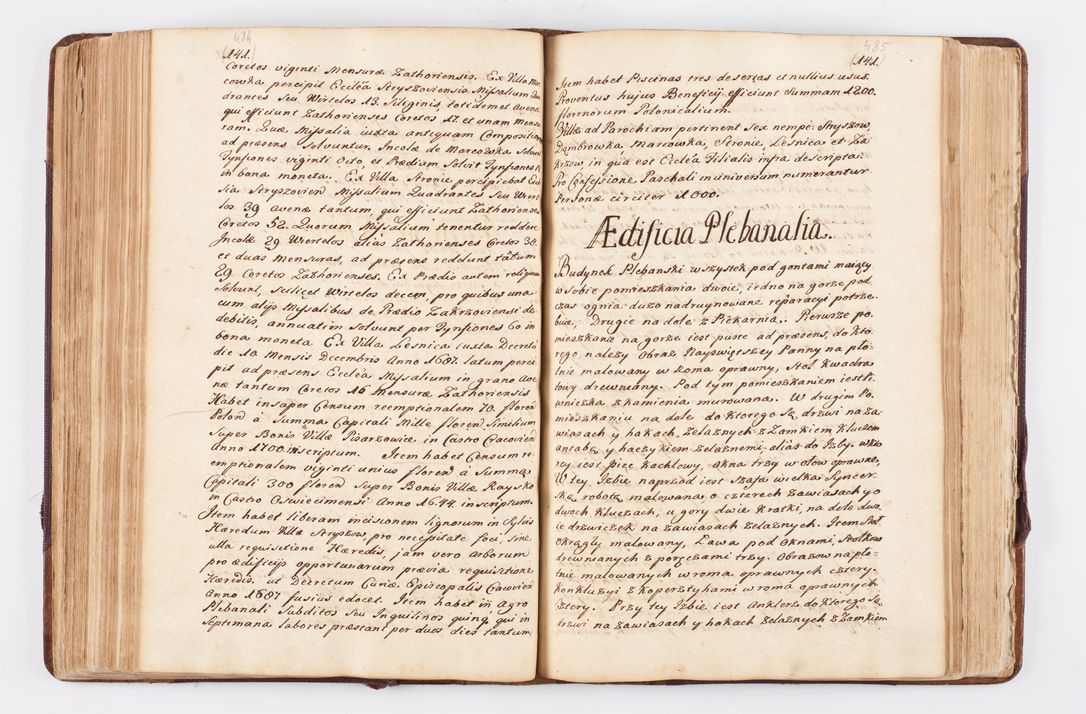 484
141.
Coretos viginti Mensuræ Zathoriensis. Ex Villa Mar
cowka percipit Eccl͠ia Stryszoviensis Missalium Qua
drantes Seu Wirtelos 13. Siliginis, totidem et avenæ
qui efficiunt Zathorienses Coretos 17. et unam Mensu
ram. Quæ Missalia iuxta antiquam Compositionem
ad præsens Solvuntur. Incolæ de Marcowka Solvunt
Tynfiones viginti Octo, et Prædium Solvit Tynfiones
in bona moneta. Ex Villa Stronie percipiebat Eccl
sia Stryszovien Missalium Quadrantes Seu Wier
los 39 avenæ tantum, qui efficiunt Zathorienses
Coretos 52. Quorum Missalium tenentur reddere
Incolæ 29 Wertelos alias Zathorienses Coretos 38.
et duas Mensuras, ad præsens reddunt tantum
29 Coretos Zathorienses. Ex Prædio autem reliquum
Solvunt, Scilicet Wirtelos decem, pro quibus una
cum alijs Missalibus de Prædio Zakrzoviensi de
debitis, annuatim Solvunt per Tynfiones 60 in
bona moneta Ex Villa Lesnica iuxta Decretũ
die 10 Mensis Decembris Anno 1687. latum perci
pit ad præsens Eccl͠ia Missalium in grano ave
næ tantum Coretos 16 Mensuræ Zathoriensis
Habet insuper Censum reemptionalem 70. floren
Polon à Summa Capitali Mille floren Similium
Super Bonis Villæ Pisarzowice in Castro Cracovien
anno 1700 inscriptum. Item habet Censum re
emptionalem viginti unius floren à Summa
Capitali 300 floren Super Bonis Villæ Raysko
in Castro Oswiecimensi Anno 1644. inscriptum.
Item habet liberam incisionem lignorum in Sylvis
Hæredum Villæ Stryszow pro necessitate foci, Sine
ulla requisitione Hæredis, jam vero arborum
pro ædificijs opportunarum prævia requisitione
Hæredis, ut Decretum Curiæ Episcopalis Cracovien
Anno 1687 fusius edocet. Item habet in agro
Plebanali Subditos Seu Inquilinos quinq qui in
Septimana labores præstant per duos dies tantum,
485
141.
Item habet Piscinas tres desertas et nullius usus.
Proventus hujus Beneficij efficiunt Summam 1200.
florenorum Polonicalium.
Villæ ad Parochiam pertinent Sex nempe: Stryszow,
Dąmbrowka, Marcowka, Stronie, Lesnica et Za
krzow in qua est Eccl͠ia Filialis infra descripta.
Pro Confessione Paschali in universum numerantur
Personæ circiter 1000.
Ædificia Plebanalia.
Budynek Plebanski wszystek pod gontami maiący
w Sobie pomieszkania dwoie, iedno na gorze pod
czas ognia duzo nadruynowane reparacyi potrze-
buie, Drugie na dole z Piekarnia. Pierwsze po
mieszkanie na gorze iest puste ad præsens, do kto
rego nalezy Obraz Nayswiętszey Panny na pło-
tnie malowany w roma oprawny, Stoł kwadra
towy drewniany. Pod tym pomieszkaniem iest Pi
wniczka z kamienia murowana. W drugim Po
mieszkaniu na dole do ktorego Są drzwi na za
wiasach y hakach zelaznych z Zamkiem kluczem
antabą y haczykiem zelaznemi, alias do Izby, w kto
ry iest piec kachlowy, okna trzy w ołow oprawne.
W tey Izbie naprzod iest Szafa wielka Syncer-
ską robotą malowana, o czterech zawiasach y o
dwoch kluczach, u gory dwie kratki, na dole dwo
ie drzwiczek na zawiasach zelaznych. Item Stoł
okrągły malowany, Ława pod oknami, Stołkow
drewnianych z poręczami trzy. Obrazow na pło-
tnie malowanych w roma oprawnych cztery.
Konkluzyi z koperształami w roma oprawnych
cztery. Przy tey Izbie iest Ankierz do ktorego Są
drzwi na zawiasach y hakach zelaznych z Zamkiem